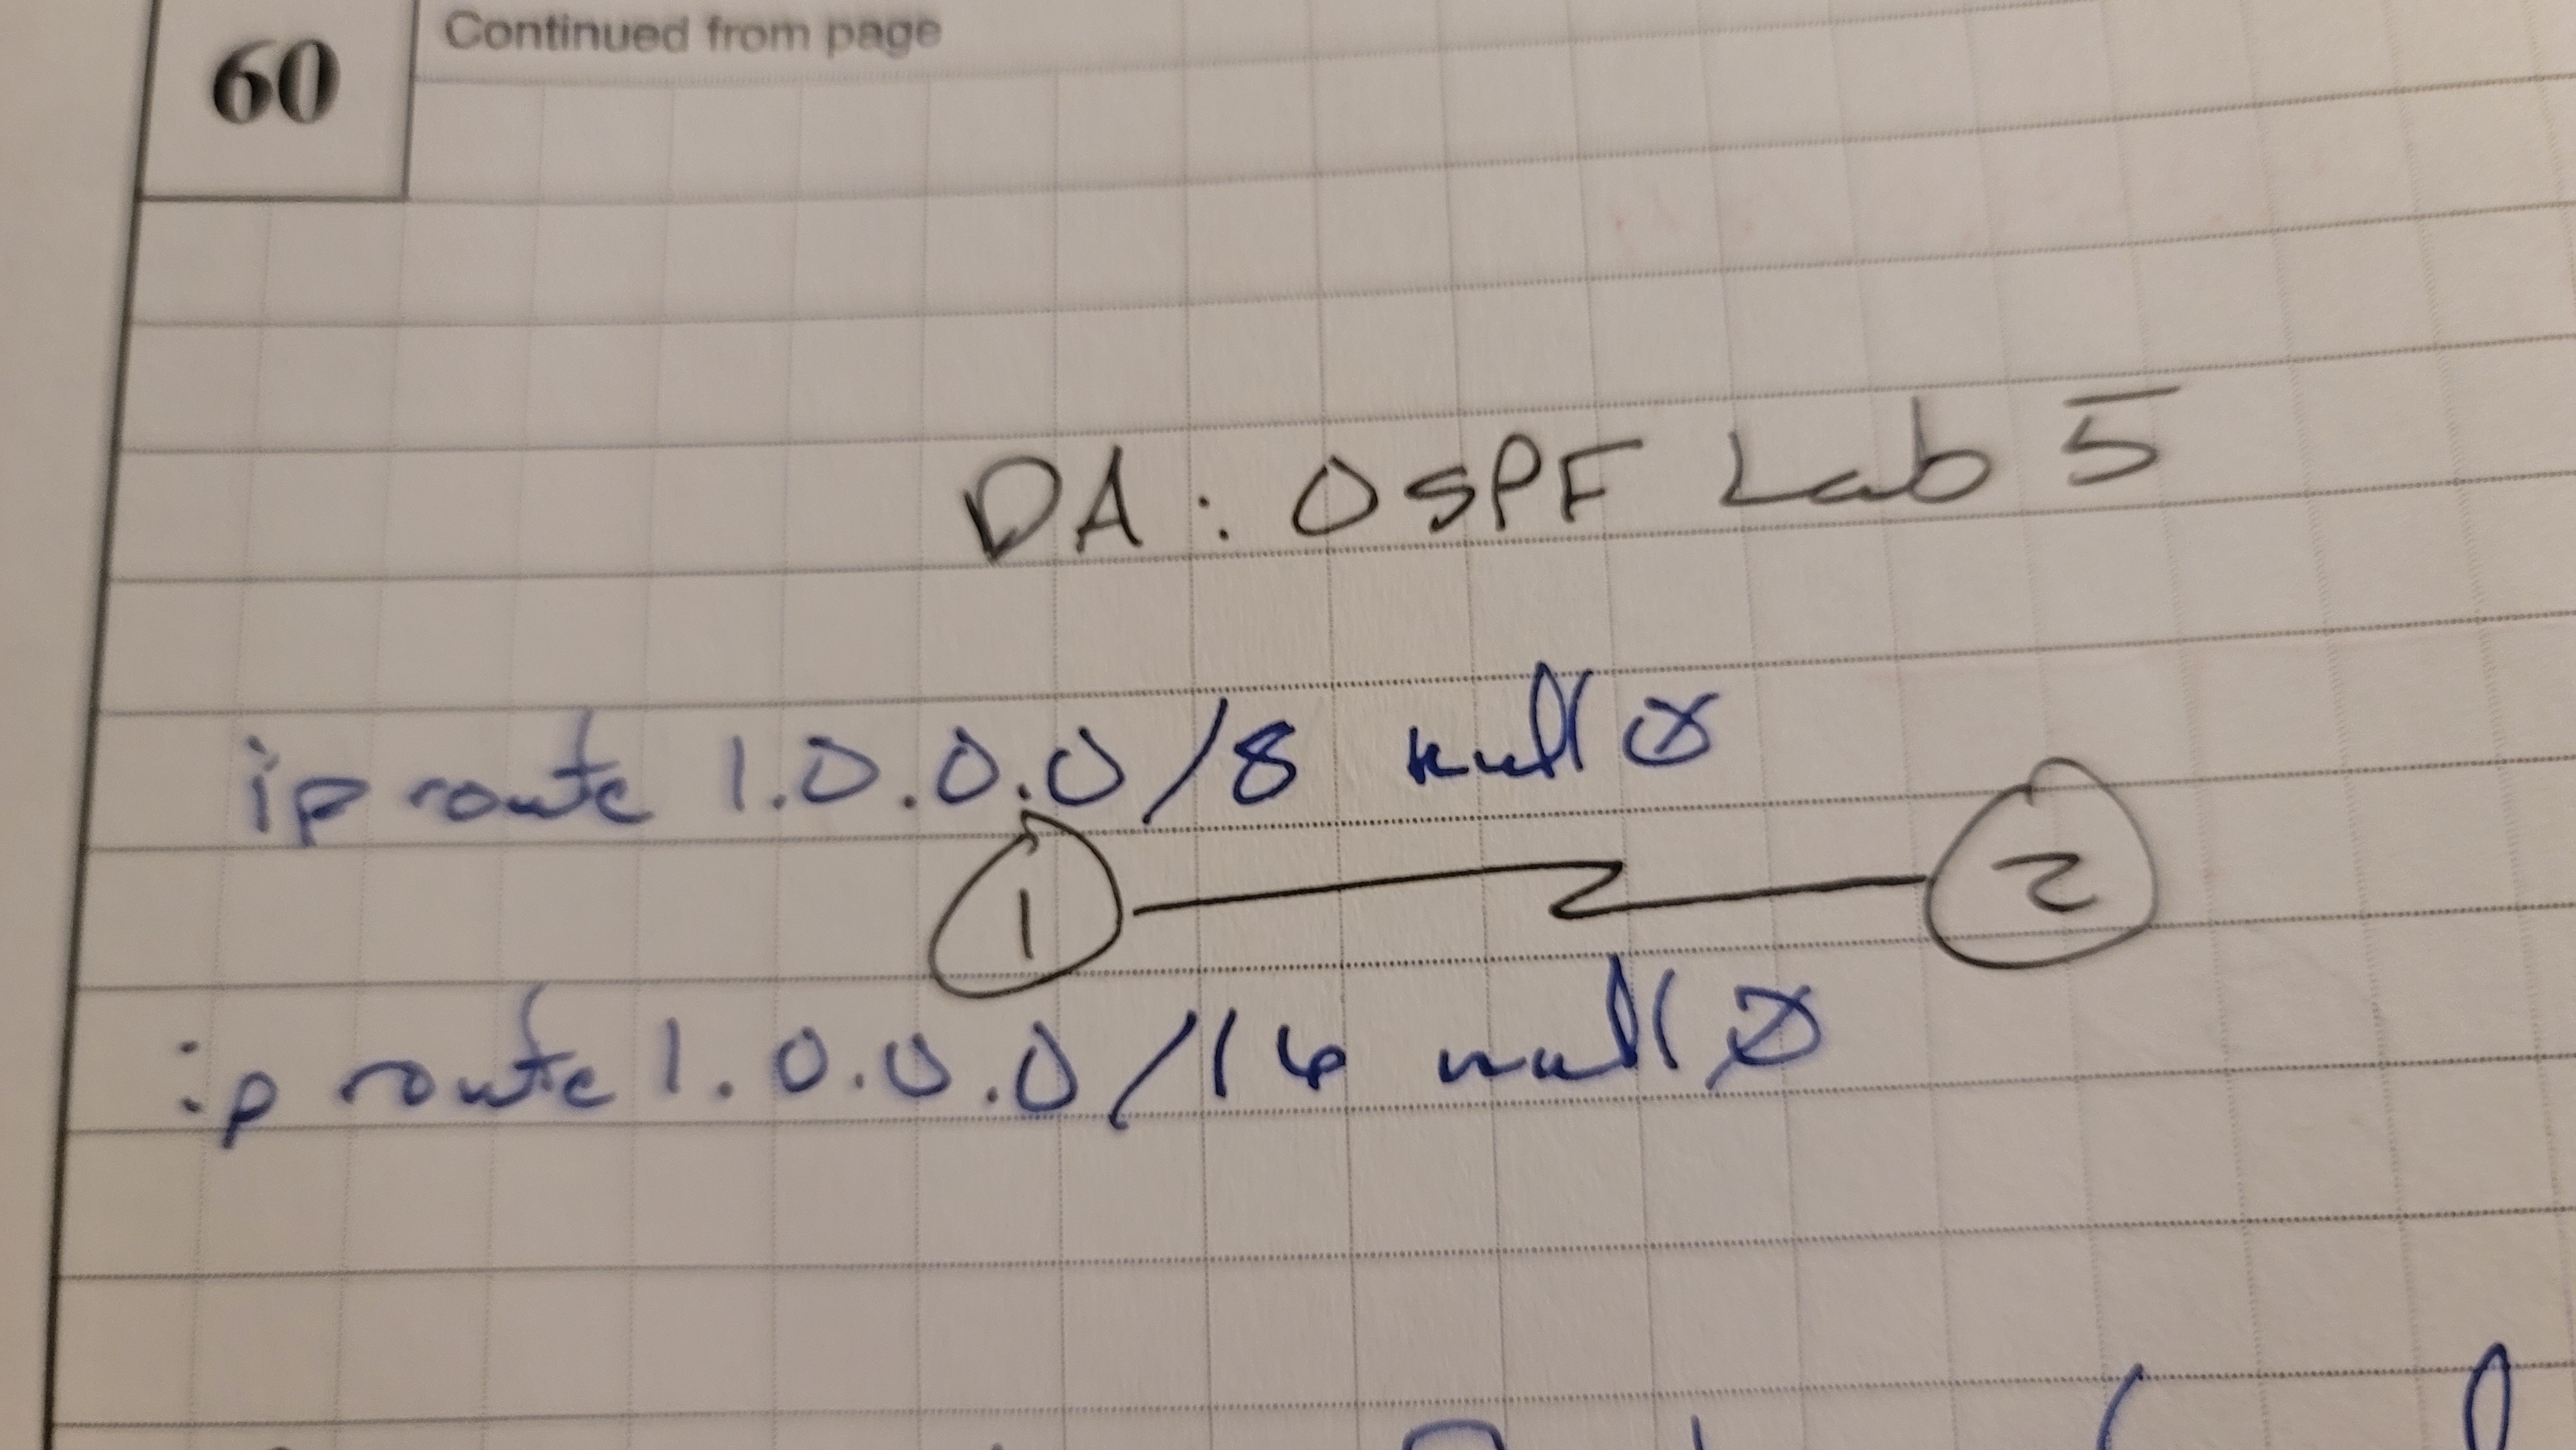 60
Continued from page
DA: OSPF Lab 5
ip route 1.0.0.0/8 null 0
1
2
ip route 1.0.0.0/16 null 0